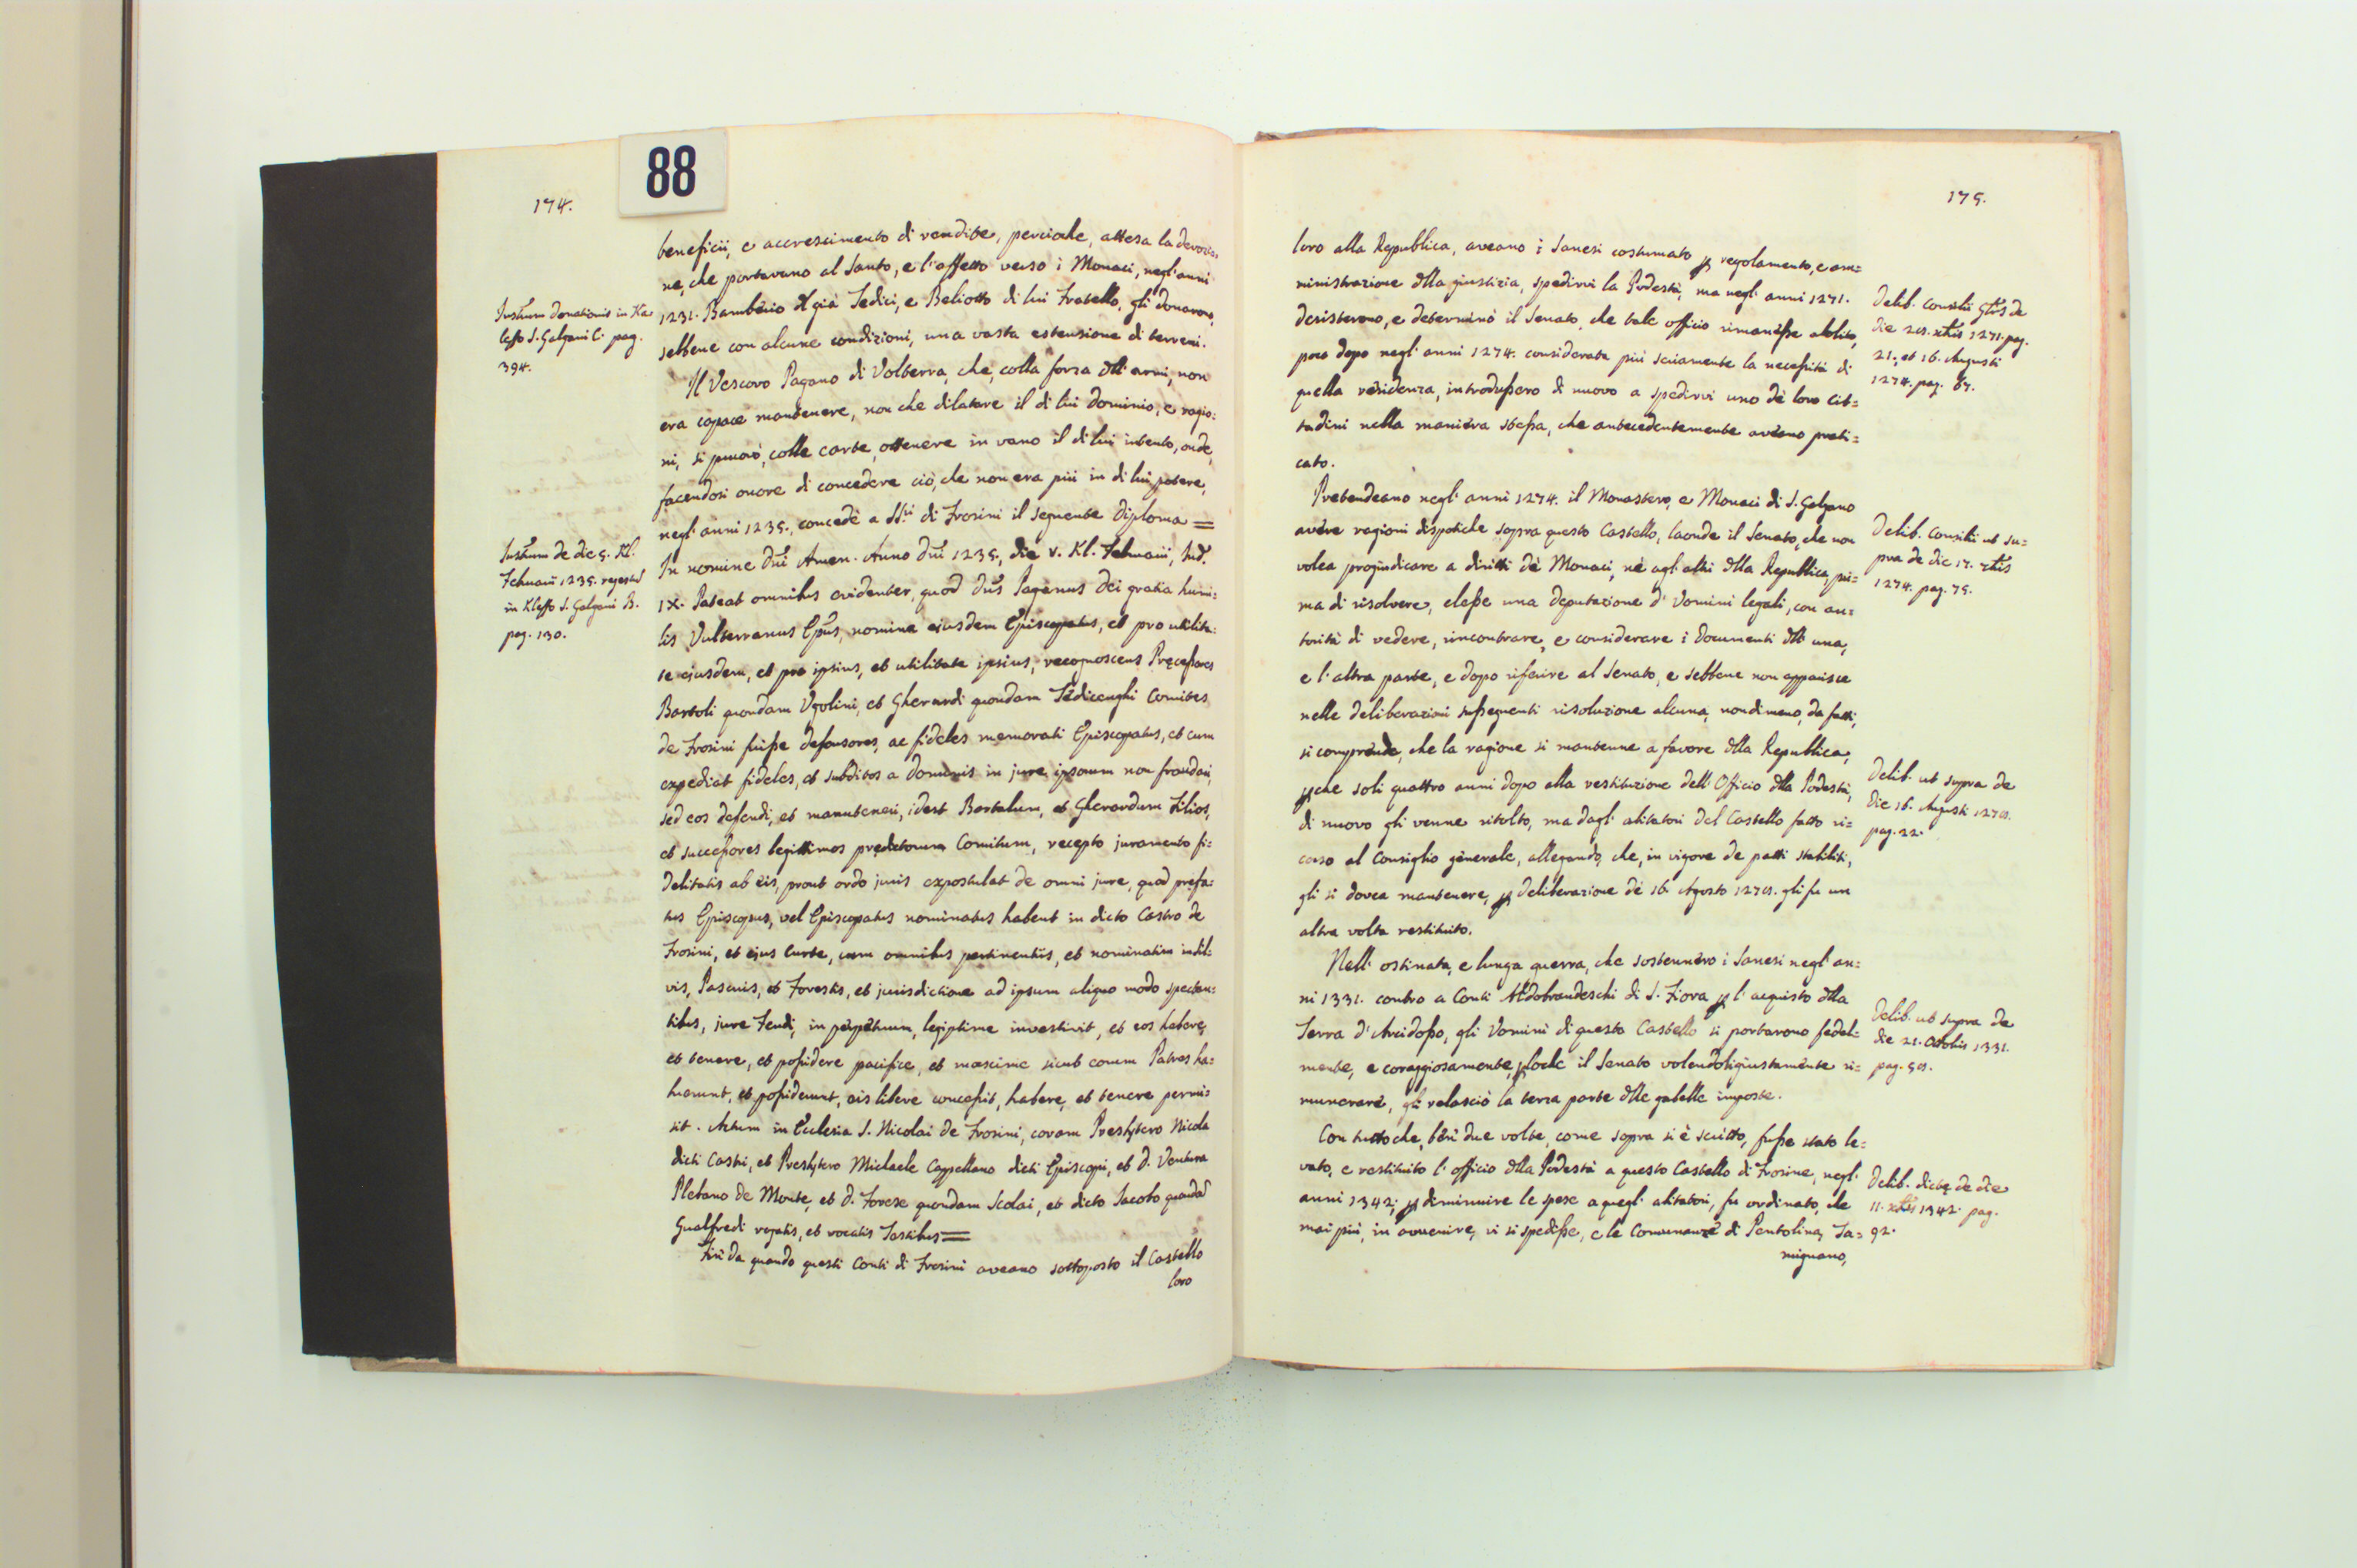 88
174.
beneficii, e accrescimento di rendite, perciocche, attesa la devozio=
ne, che portavano al Santo, e l'affetto verso i Monaci, negl'anni
1231. Bamberio del già Sedici, e Beliotto di lui Fratello, gli donarono,
sebbene con alcune condizioni, una vasta estensione di terreni.
Il Vescovo Pagano di Volterra, che, colla forza dell'armi, non
era capace mantenere, non che dilatare il di lui dominio, e ragio=
ni, si provò, colle carte, ottenere in vano il di lui intento, onde,
facendosi onore di concedere ciò, che non era più in di lui potere,
negl'anni 1235., concedè a SS.ri di Frosini il seguente diploma =
In nomine dni Amen. Anno dni 1235., die V. Kl. Febuarii, Ind.
IX. Pateat omnibus evidenter, quod dns Paganus dei gratia humi=
lis Vulterranus Epus, nomine eiusdem Episcopatus, et pro utilita=
te eiusdem, et pro ipsius, et utilitate ipsius, recognoscens Precessores
Bartoli quondam Ugolini, et Gherardi quondam Tedicenghi Comites
de Frosini fuisse defensores, ac fideles memorati Episcopatus, et cum
expediat fideles, et subditos a dominis in jure ipsorum non fraudari,
sed eos defendi, et manuteneri, idest Bartalum, et Gherardum Filios,
et successores legittimos predictorum Comitum, recepto juramento fi=
delitatis ab eis, prout ordo juris expostulat de omni jure, quod prefa=
tus Episcopus, vel Episcopatus nominatus habent in dicto Castro de
Frosini, et ejus Curte, cum omnibus pertinentiis, et nominatim in
vis, Pascuis, et Forestis, et jurisdictione ad ipsum aliquo modo spectan=
tibus, jure Feudi, in perpetuum, legiptime investivit, et eos habere,
et tenere, et possidere pacifice, et maxime sicut eorum Patres ha=
buerunt, et possiderunt, eis libere concessit, habere, et tenere permi=
sit. Actum in Ecclesia S. Nicolai de Frosini, coram Presbytero Nicola
dicti Castri, et Presbytero Michaele Cappellano dicti Episcopi, et D. Ventura
Plebano de Monte, et D. Forese quondam Scolai, et dicto Jacobo quondam
Gualfredi rogatis, et vocatis Testibus =
Fin da quando questi Conti di Frosini aveano sottoposto il Castello
loro
Instrum donationis in Ka
leffo S. Galgani C. pag.
394.
Instrum de die 5. Kl.
Febuarii 1235. regestus
in Kleffo S. Galgani B.
pag. 130.
175.
loro alla Republica, aveano i Sanesi costumato per regolamento, e am=
ministrazione della giustizia, spedirvi la Podestà, ma negl'anni 1271.
desisterono, e determinò il Senato, che tale officio rimanesse abolito,
poco dopo negl'anni 1274. considerata più seriamente la necessità di
quella residenza, introdussero di nuovo a spedirvi uno de loro Cit=
tadini nella maniera stessa, che antecedentemente aveano prati=
cato.
Pretendeano negl'anni 1274. il Monastero, e Monaci di S. Galgano
avere ragioni dispotiche sopra questo Castello, laonde il Senato, che non
volea progiudicare a diritti de Monaci, nè agl'altri della Republica, pri=
ma di risolvere, elesse una deputazione d'Vomini legali, con au=
torità di vedere, rincontrare, e considerare i documenti dell'una,
e l'altra parte, e dopo riferire al Senato, e sebbene non apparisce
nelle deliberazioni susseguenti risoluzione alcuna, nondimeno, da fatti,
si comprende, che la ragione si mantenne a favore della Republica,
perche soli quattro anni dopo alla restituzione dell'Officio della Podestà,
di nuovo gli venne ritolto, ma dagl'abitatori del Castello fatto ri=
corso al Consiglio generale, allegando, che, in vigore de patti stabiliti,
gli si dovea mantenere, per deliberazione de 16. Agosto 1279. gli fu un
altra volta restituito.
Nell'ostinata, e lunga guerra, che sostennero i Sanesi negl'an=
ni 1331. contro a Conti Aldobrandeschi di S. Fiora per l'acquisto della
Terra d'Arcidosso, gli Vomini di questo Castello si portarono fedel=
mente, e coraggiosamente, per loche il Senato volendoli giustamente ri=
munerare, gli relasciò la terza parte delle gabelle imposte.
Con tuttoche, ben due volte, come sopra si è scritto, fusse stato le=
vato, e restituito l'officio della Podestà a questo Castello di Frosine, negl'
anni 1342; per diminuire le spese a quegl'abitatori, fu ordinato, che
mai più, in avvenire, vi si spedisse, e le Comunanze di Pentolina, Ta=
mignano,
Delib. Consilii Glis de
die 29. xbris 1271. pag.
21., et 16. Augusti
1274. pag. 67.
Delib. Consilii ut su=
pra de die 17. 7bris
1274. pag. 75.
Delib. ut supra de
die 16. Augusti 1279.
pag. 22.
Delib. ut supra de
die 21. Octobris 1331.
pag. 59.
Delib. dicte de die
11. xbris 1342. pag.
92.